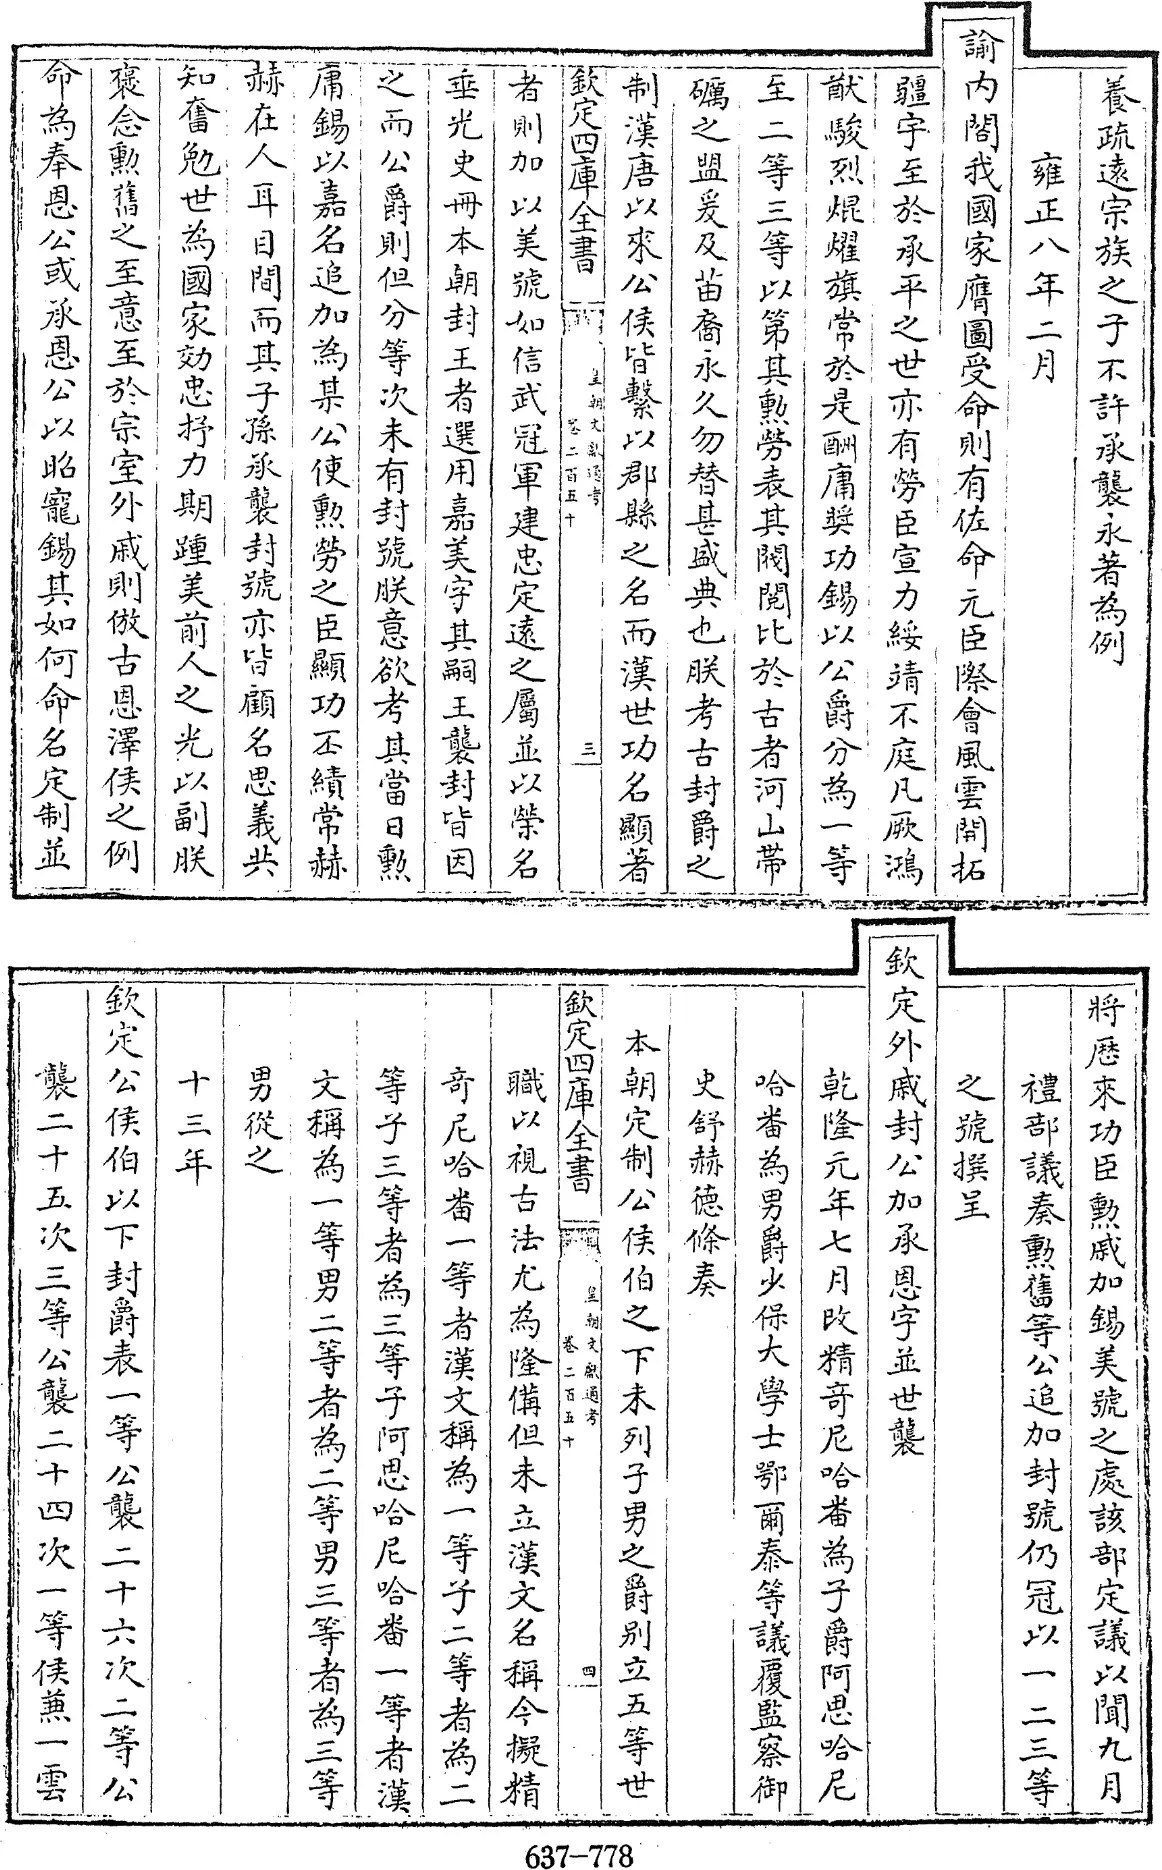 養疏遠宗族之子不許承襲永著為例
雍正八年二月
諭內閣我國家膺圖受命則有佐命元臣際會風雲開拓
疆宇至於承平之世亦有勞臣宣力綏靖不庭凡厥鴻
猷駿烈焜燿旗常於是酬庸奬功錫以公爵分為一等
至二等三等以第其勲勞表其閥閱比於古者河山帶
礪之盟爰及苗裔永久勿替甚盛典也朕考古封爵之
制漢唐以來公侯皆繫以郡縣之名而漢世功名顯著
欽定四庫全書
皇朝文獻通考
卷二百五十
三
者則加以美號如信武冠軍建忠定遠之屬並以榮名
垂光史冊本朝封王者選用嘉美字其嗣王襲封皆因
之而公爵則但分等次未有封號朕意欲考其當日勲
庸錫以嘉名追加為某公使勲勞之臣顯功丕績常赫
赫在人耳目間而其子孫承襲封號亦皆顧名思義共
知奮勉世為國家効忠抒力期踵美前人之光以副朕
褒念勲舊之至意至於宗室外戚則倣古恩澤侯之例
命為奉恩公或承恩公以昭寵錫其如何命名定制並
將歷來功臣勲戚加錫美號之處該部定議以聞九月
禮部議奏勲舊等公追加封號仍冠以一二三等
之號撰呈
欽定外戚封公加承恩字並世襲
乾隆元年七月改精奇尼哈番為子爵阿思哈尼
哈番為男爵少保大學士鄂爾泰等議覆監察御
史舒赫德條奏
本朝定制公侯伯之下未列子男之爵別立五等世
欽定四庫全書
皇朝文獻通考
卷二百五十
四
職以視古法尤為隆備但未立漢文名稱今擬精
奇尼哈番一等者漢文稱為一等子二等者為二
等子三等者為三等子阿思哈尼哈番一等者漢
文稱為一等男二等者為二等男三等者為三等
男從之
十三年
欽定公侯伯以下封爵表一等公襲二十六次二等公
襲二十五次三等公襲二十四次一等侯兼一雲
637-778